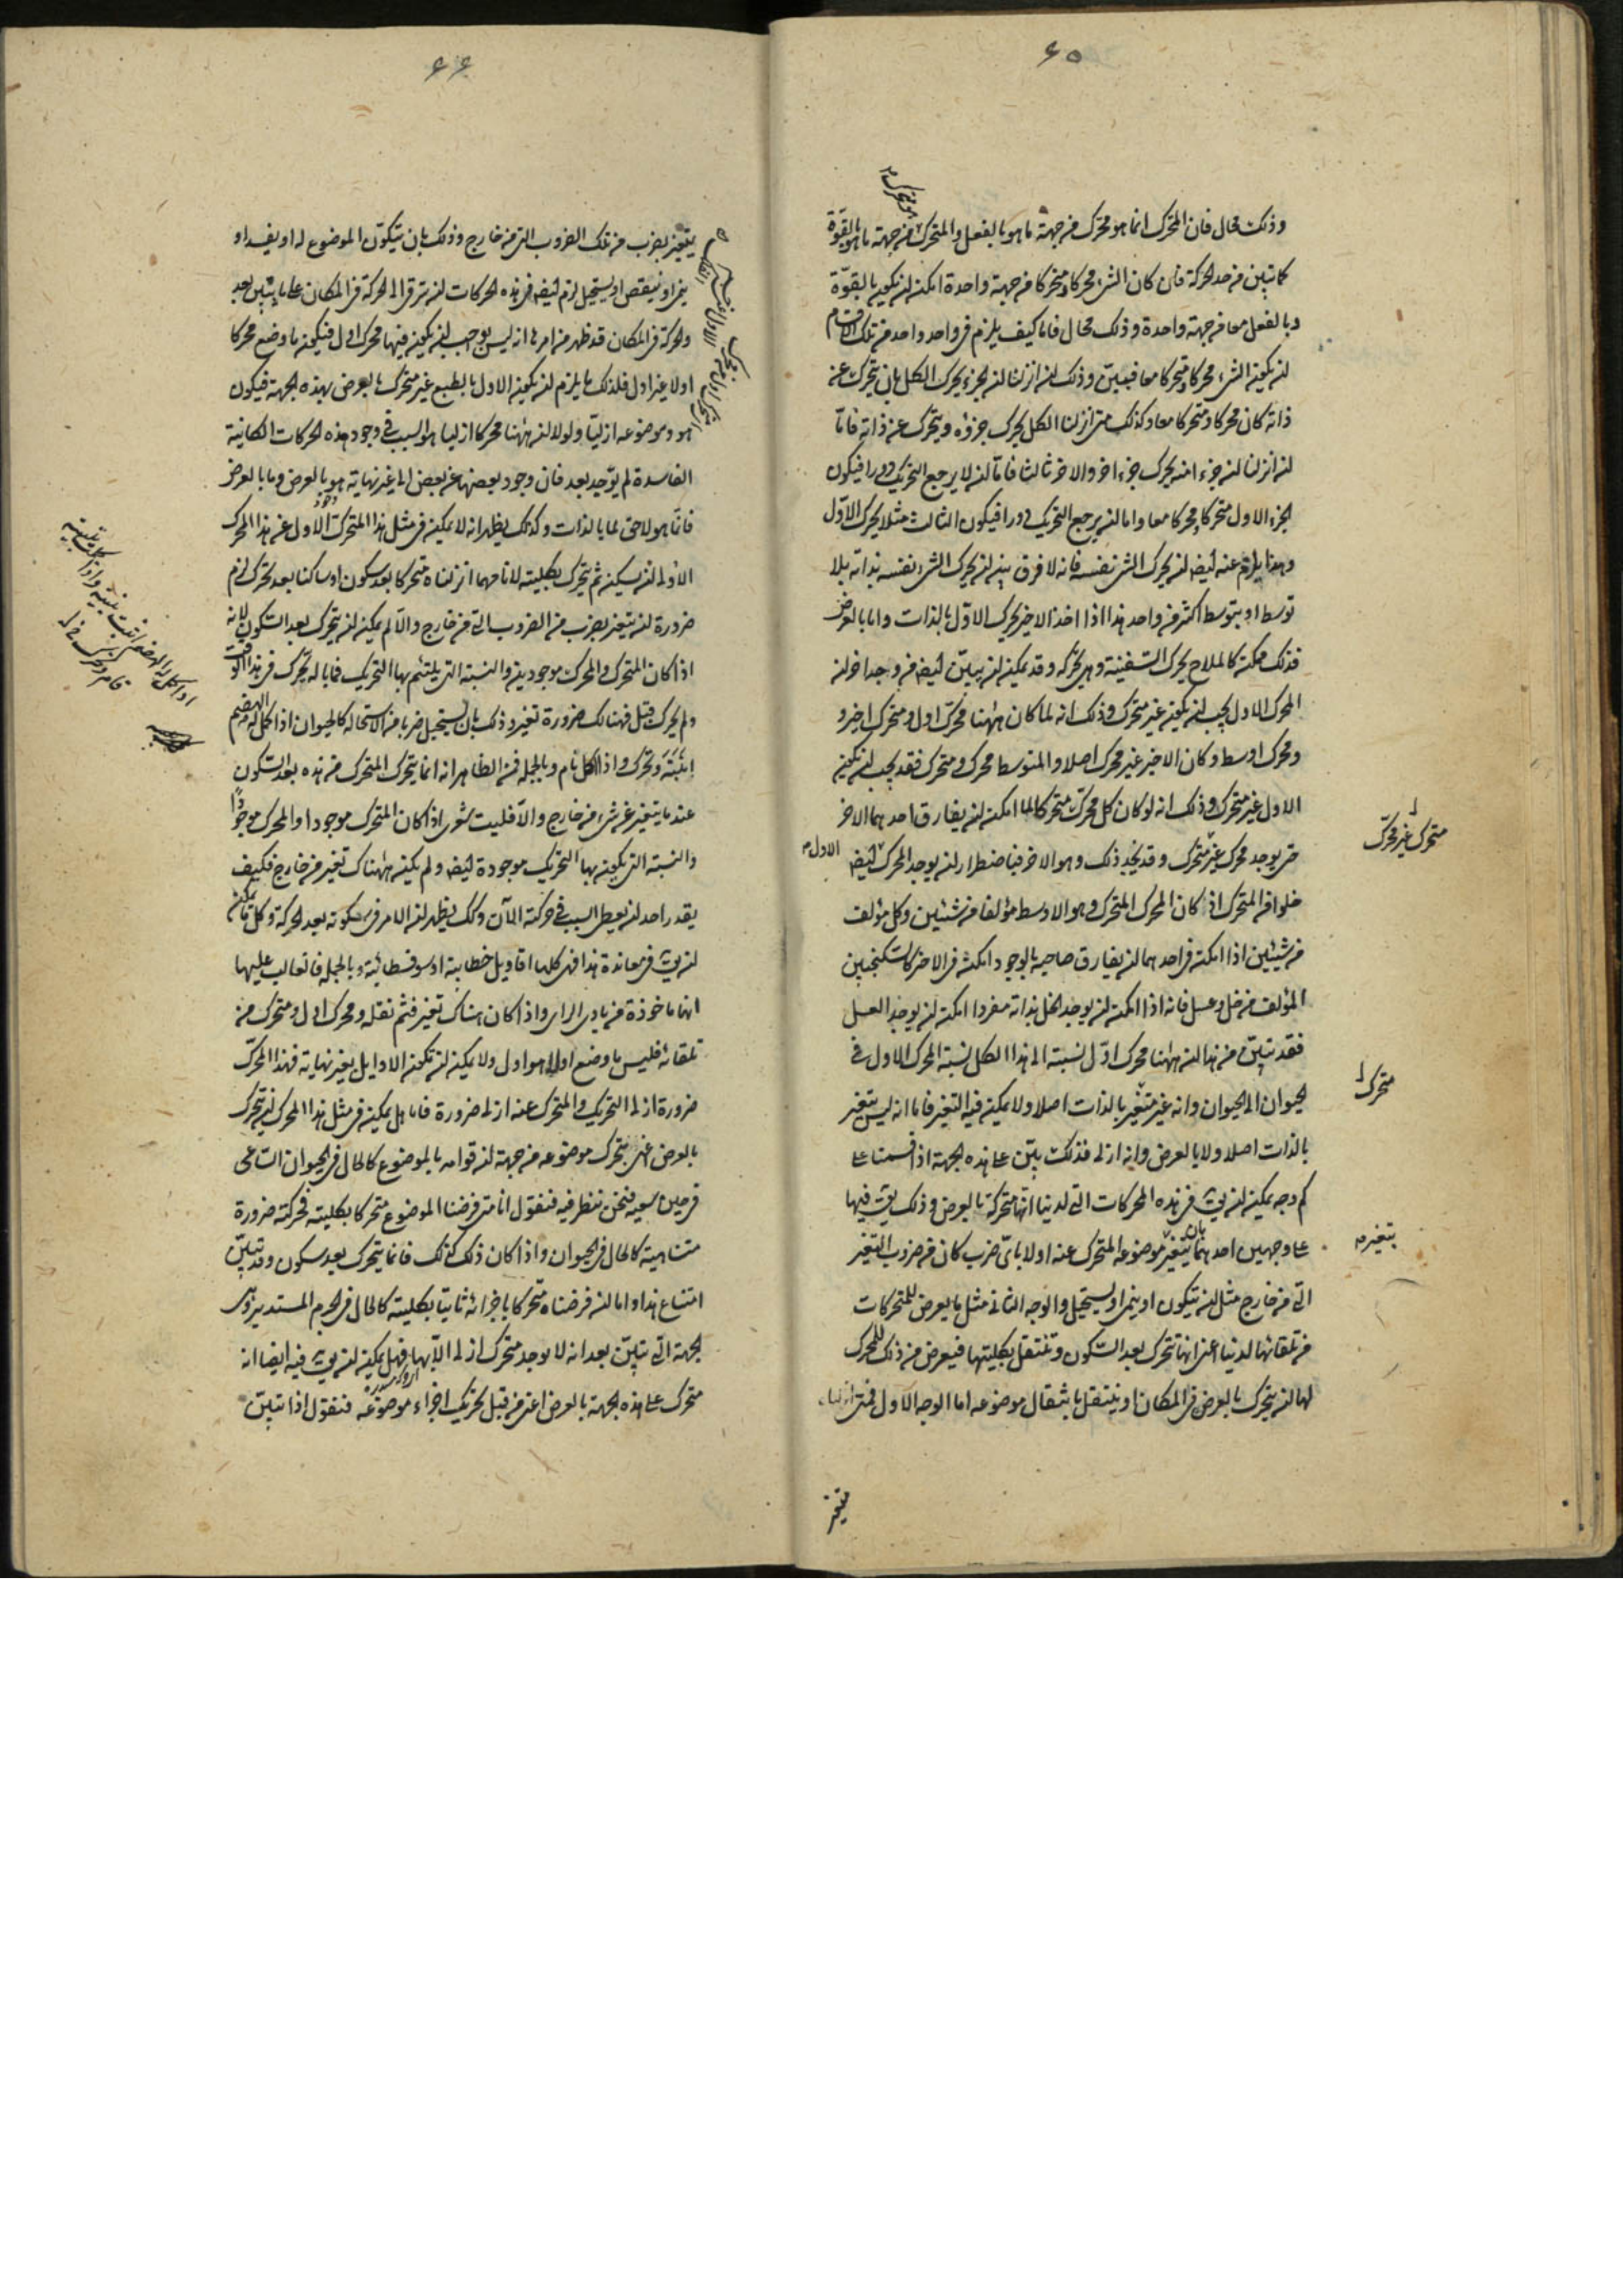 ٦٥
وذلك محال فان المحرك انما هو محرك من جهة ما هو بالفعل والمتحرك من جهة ما هو بالقوة
كما تبين من حد الحركة فان كان الشئ محركا ومتحركا من جهة واحدة امكن ان يكون بالقوة
وبالفعل معا من جهة واحدة وذلك محال فاما كيف يلزم فى واحد واحد من تلك الاقسام
ان يكون الشئ محركا ومتحركا معا فبين وذلك ان انزلنا ان الجزء يحرك الكل بان يتحرك عن
ذاته كان محركا ومتحركا معا وكذلك متى انزلنا الكل يحرك جزؤه ويتحرك عن ذاته فاما
ان انزلنا ان جزءا منه يحرك جزءا اخر والاخر ثالثا فاما ان لا يرجع التحريك دورا فيكون
الجزء الاول متحركا ومحركا معا واما ان يرجع التحريك دورا فيكون الثالث مثلا يحرك الاول
وهذا يلزم عنه ايضا ان يحرك الشئ نفسه فانه لا فرق بين ان يحرك الشئ نفسه بذاته بلا
توسط او بتوسط اكثر من واحد هذا اذا اخذ الاخير يحرك الاول بالذات واما بالعرض
فذلك ممكن كالملاح يحرك السفينة وهى تحركه وقد يمكن ان يبين ايضا من وجه اخر ان
المحرك الاول يجب ان يكون غير متحرك وذلك انه لما كان ههنا محرك اول ومتحرك اخير و
ومحرك اوسط وكان الاخير غير محرك اصلا والمتوسط محرك ومتحرك فقد يجب ان يكون
الاول غير متحرك وذلك انه لو كان كل محرك متحركا لما امكن ان يفارق احدهما الاخر
حتى يوجد محرك غير متحرك وقد نجد ذلك وهو الاخر فباضطرار ان يوجد المحرك ايضا
الاول
خلوا من المتحرك اذ كان المحرك المتحرك وهو الاوسط مؤلفا من شيئين وكل مؤلف
من شيئين اذا امكن فى احدهما ان يفارق صاحبه بالوجود امكن فى الاخر كالسكنجبين
المؤلف من خل وعسل فانه اذا امكن ان يوجد الخل بذاته مفردا امكن ان يوجد العسل
فقد تبين من هذا ان ههنا محرك اول نسبته الى هذا الكل نسبة المحرك الاول فى
الحيوان الى الحيوان وانه غير متغير بالذات اصلا ولا يمكن فيه التغير فاما انه ليس يتغير
بالذات اصلا ولا بالعرض وانه ازلى فذلك يبين على هذه الجهة اذا قسمنا على
كم وجه يمكن ان يق فى هذه المحركات التى لدينا انها متحركة بالعرض وذلك يق فيها
على وجهين احدهما بان يتغير موضوعه المتحرك عنه اولا باى ضرب كان من ضروب التغير
التى من خارج مثل ان يتكون او ينمى او يستحيل والوجه الثانى مثل ما يعرض للمتحركات
من تلقائها لدينا اعنى انها تتحرك بعد السكون وتنتقل بكليتها فيعرض من ذلك للمحرك
لها ان يتحرك بالعرض فى المكان او ينتقل بانتقال موضوعه اما الوجه الاول فمتى انزلناه
يتغير
متحرك غير محرك
متحرك
يتغير
٦٦
يتغير بضرب من تلك الضروب التى من خارج وذلك بان يتكون الموضوع له او يفسد او
ينمى او ينقص او يستحيل لزم ايضا فى هذه الحركات ان ترقى الى الحركة فى المكان على ما يتبين بعد
والحركة فى المكان قد ظهر من امرها انه ليس يوجب ان يكون فيها محرك اول فيكون ما وضع محركا
اولا غير اول فلذلك ما يلزم ان يكون الاول بالطبع غير متحرك بالعرض بهذه الجهة فيكون
هو وموضوعه ازليا ولولا ان ههنا محركا ازليا هو السبب فى وجود هذه الحركات الكائنة
الفاسدة لم يوجد بعد فان وجود بعضها عن بعض الى غير نهاية هو بالعرض وما بالعرض
فانما هو لاحق لما بالذات وكذلك يظهر انه لا يمكن فى مثل هذا المتحرك الاول عن هذا المحرك
الاول ان يسكن ثم يتحرك بكليته لانا مهما انزلناه متحركا بعد سكون او ساكنا بعد تحرك لزم
ضرورة ان يتغير بضرب من الضروب التى من خارج والا لم يمكن ان يتحرك بعد السكون لانه
اذا كان المتحرك والمحرك موجودين والنسبة التى يلتئم بها التحريك فما باله تحرك فى هذا الوقت
ولم يحرك قبل فهنالك ضرورة تغير وذلك بان يستحيل ضربا من الاستحالة كالحيوان اذا كمل له الهضم
انتبه وتحرك واذا اكل نام وبالجملة فمن الظاهر انه انما يتحرك المتحرك من هذه بعد السكون
عندما يتغير عن شئ من خارج والا فليت شعرى اذا كان المتحرك موجودا والمحرك موجودا
والنسبة التى يكون بها التحريك موجودة ايضا ولم يكن هناك تغير من خارج فكيف
يقدر احد ان يعطى السبب فى حركته الآن وكك يظهر ان الامر فى سكونه بعد الحركة وكل ما يمكن
ان يق فى معاندة هذا فهى كلها اقاويل خطابية او سوفسطائية وبالجملة فالغالب عليها
انها ماخوذة من بادى الراى واذا كان هناك تغير فثم نقلة ومحرك اول ومتحرك من
تلقائه فليس ما وضع اولا هو اول ولا يمكن ان تكون الاوايل بغير نهاية فهذا المحرك
ضرورة ازلى التحريك والمتحرك عنه ازلى ضرورة فاما هل يمكن فى مثل هذا المحرك ان يتحرك
بالعرض اعنى بتحرك موضوعه من جهة ان قوامه بالموضوع كالحال فى الحيوان الساعى
فى حين سعيه فنحن ننظر فيه فنقول انا متى فرضنا الموضوع متحركا بكليته فحركته ضرورة
متناهية كالحال فى الحيوان واذا كان ذلك كذلك فانما يتحرك بعد سكون وقد تبين
امتناع هذا واما ان فرضناه متحركا باجزائه ثابتا بكليته كالحال فى الجرم المستدير وهى
الجهة التى يتبين بعد انه لا يوجد متحرك ازلى الا بها فهل يمكن ان يق فيه ايضا انه
متحرك على هذه الجهة بالعرض اعنى من قبل تحريك اجزاء موضوعه فنقول اذا تبين